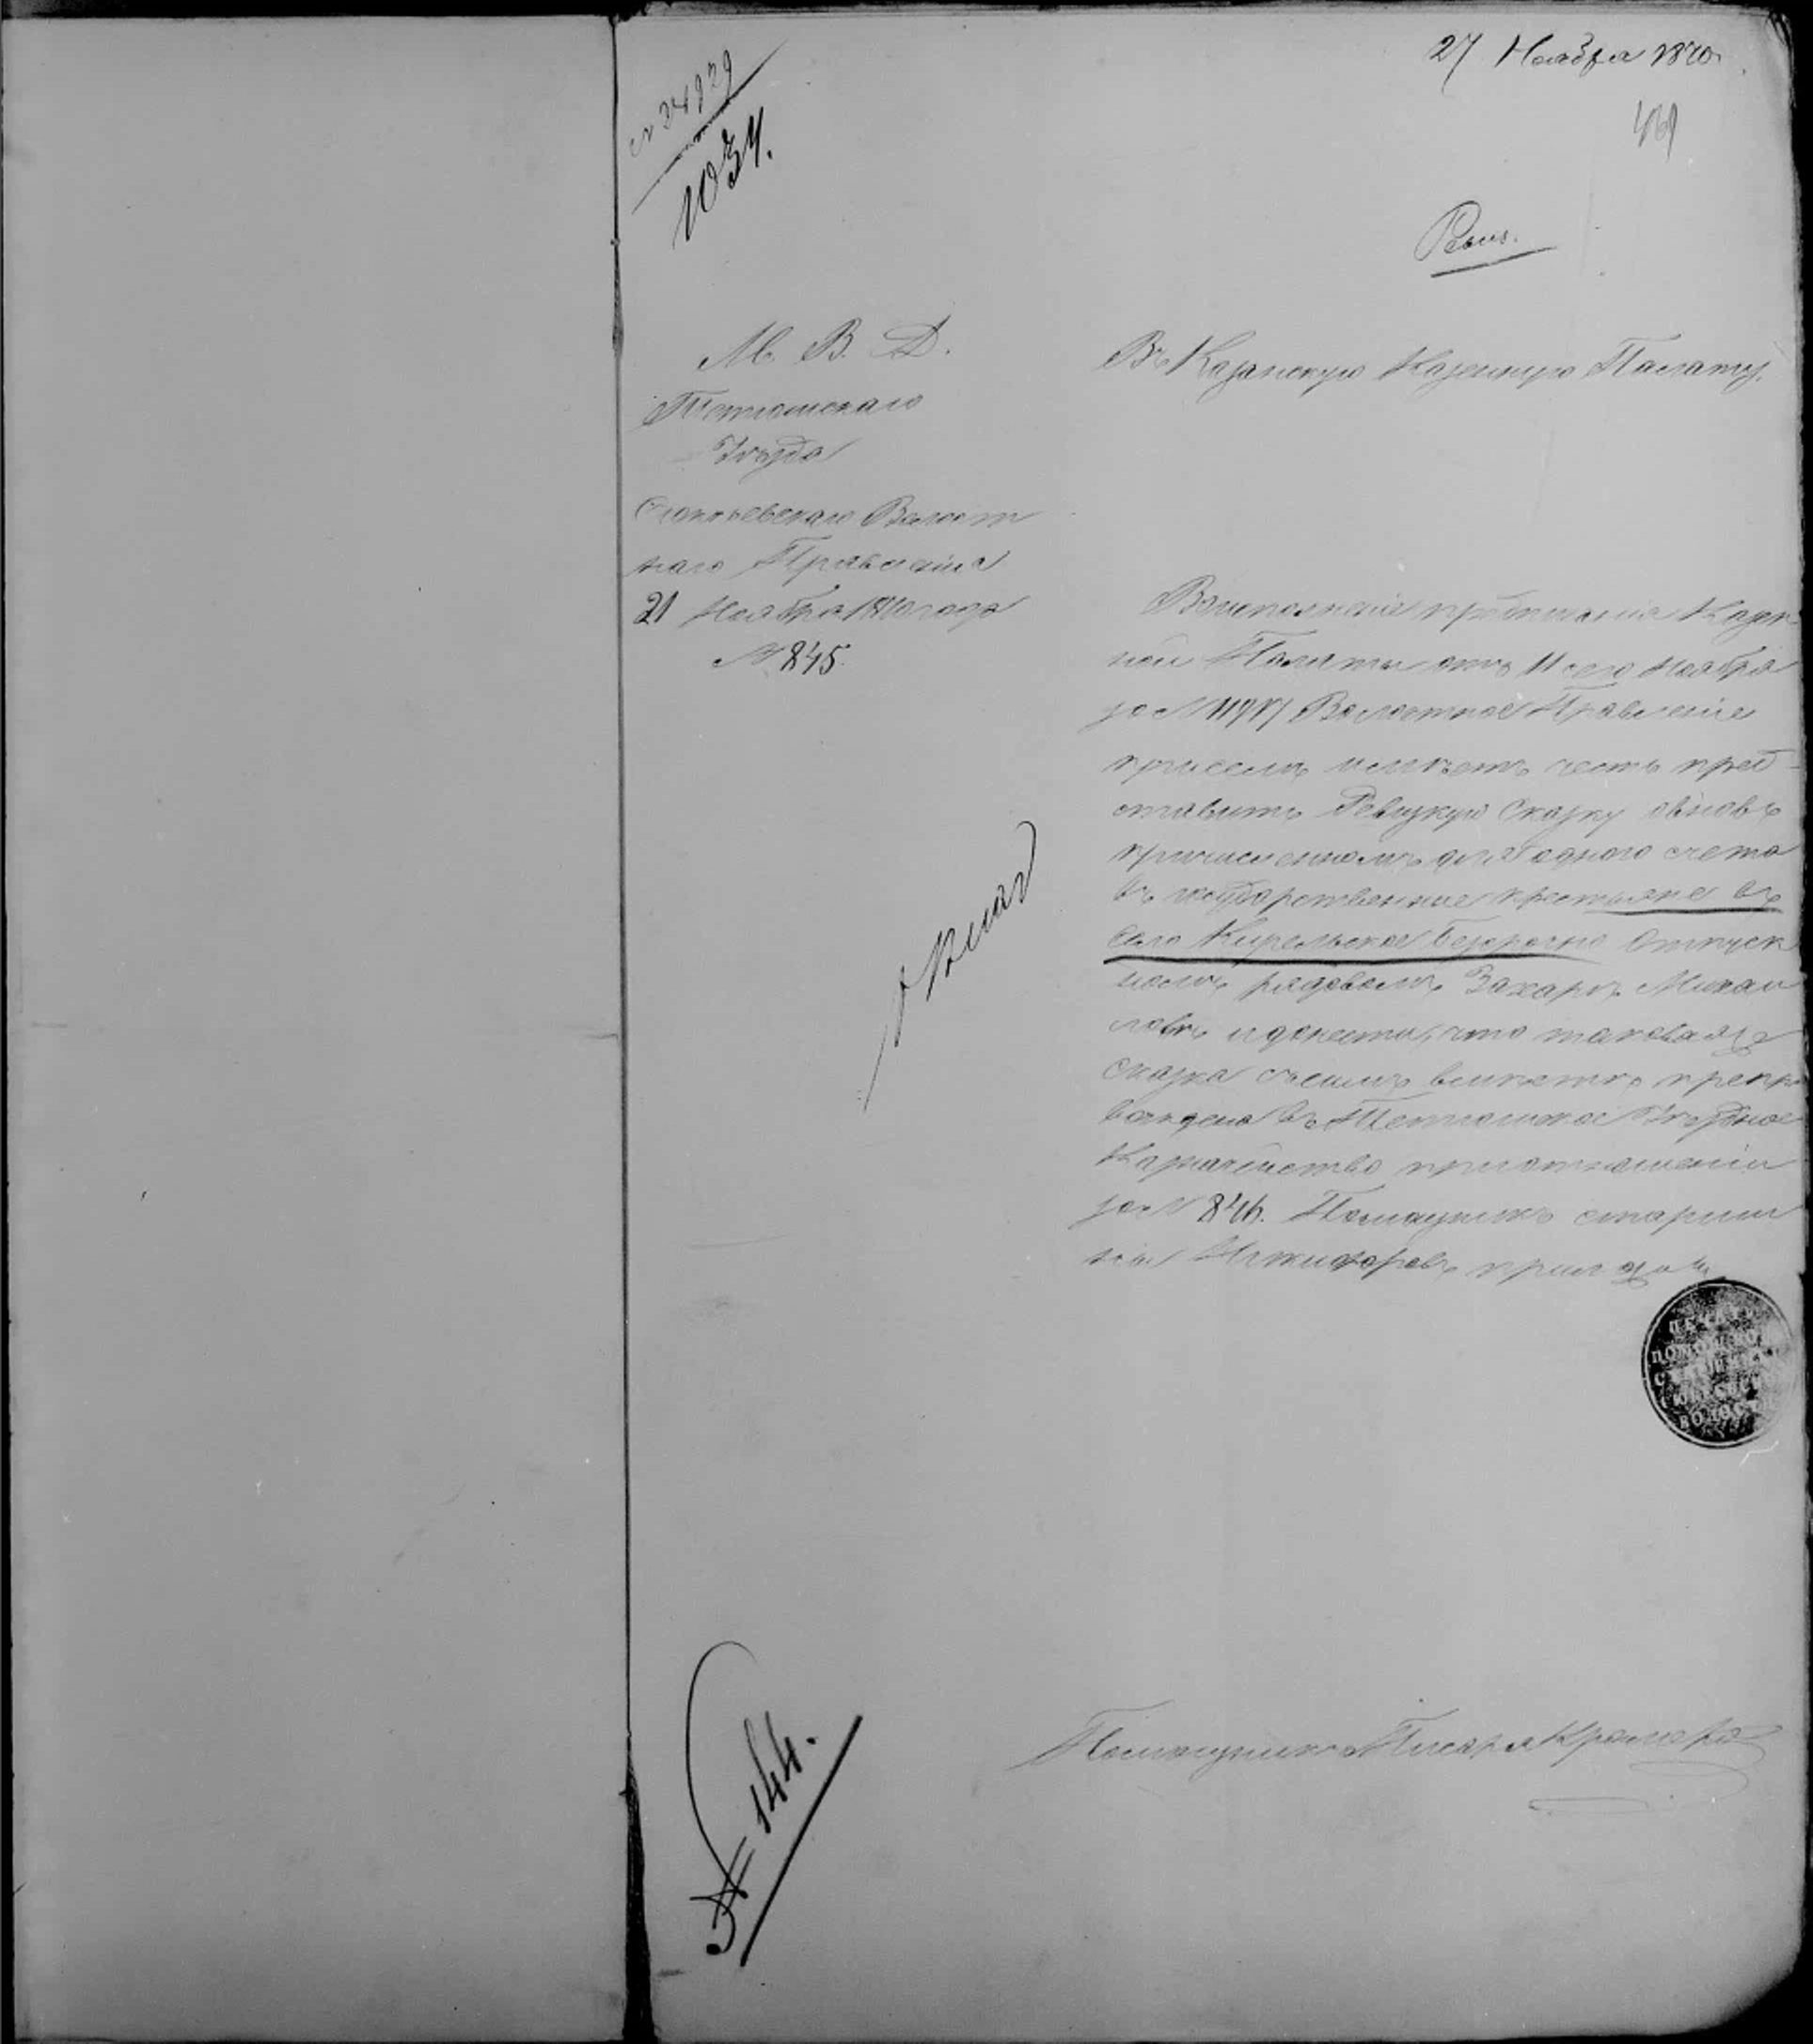 27 Ноября 1870
№ 24929
1034.
469
Ревиз.
М. В. Д.
Тетюшскаго
Уѣзда
Волост
наго Правленія
21 Ноября 1870 года
№ 845.
Въ Казанскую Казенную Палату.
Во исполненіе предписанія Казен
ной Палаты отъ 11 сего Ноября
за № Волостное Правленіе
при семъ имѣетъ честь пред-
ставить Ревизкую Сказку о вновь
причисленномъ для одного счета
въ государственные крестьяне въ
село Кирельское безсрочно отпуск
номъ рядовомъ Захаръ Михаи
ловъ и донести, что таковая же
сказка съ симъ вмѣстѣ препро
вождена въ Тетюшское Уѣздное
Казначейство при отношеніи
за № 846. Помощникъ старши
ны Никифоровъ приложилъ
ПЕЧАТЬ
ПОМОЩНИКА
СТАРШИНЫ
ВОЛОСТИ
№ 144.
Помощникъ Писаря